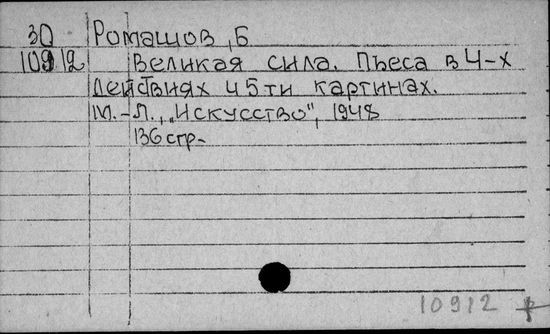 30 Ромашов, Б
10912 Великая сила. Пьеса в 4-х
действиях и 5ти картинах.
М.-Л., „Искусство", 1948
136 стр-
10912